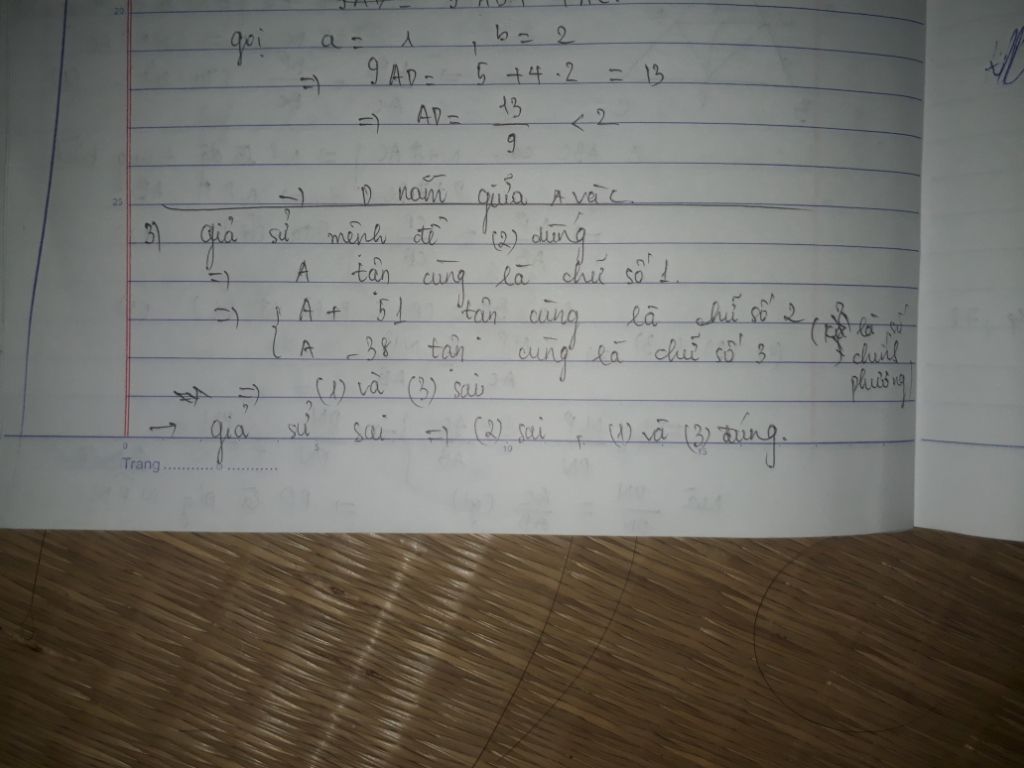 gọi a = 1 , b = 2
=> 9AD = 5 + 4.2 = 13
=> AD = 13/9 < 2
-> D nằm giữa A và C.
3) giả sử mệnh đề (2) đúng
=> A tận cùng là chữ số 1.
=> { A + 51 tận cùng là chữ số 2 là số
A - 38 tận cùng là chữ số 3 chính
phương)
=> (1) và (3) sai
-> giả sử sai => (2) sai , (1) và (3) đúng.
Trang